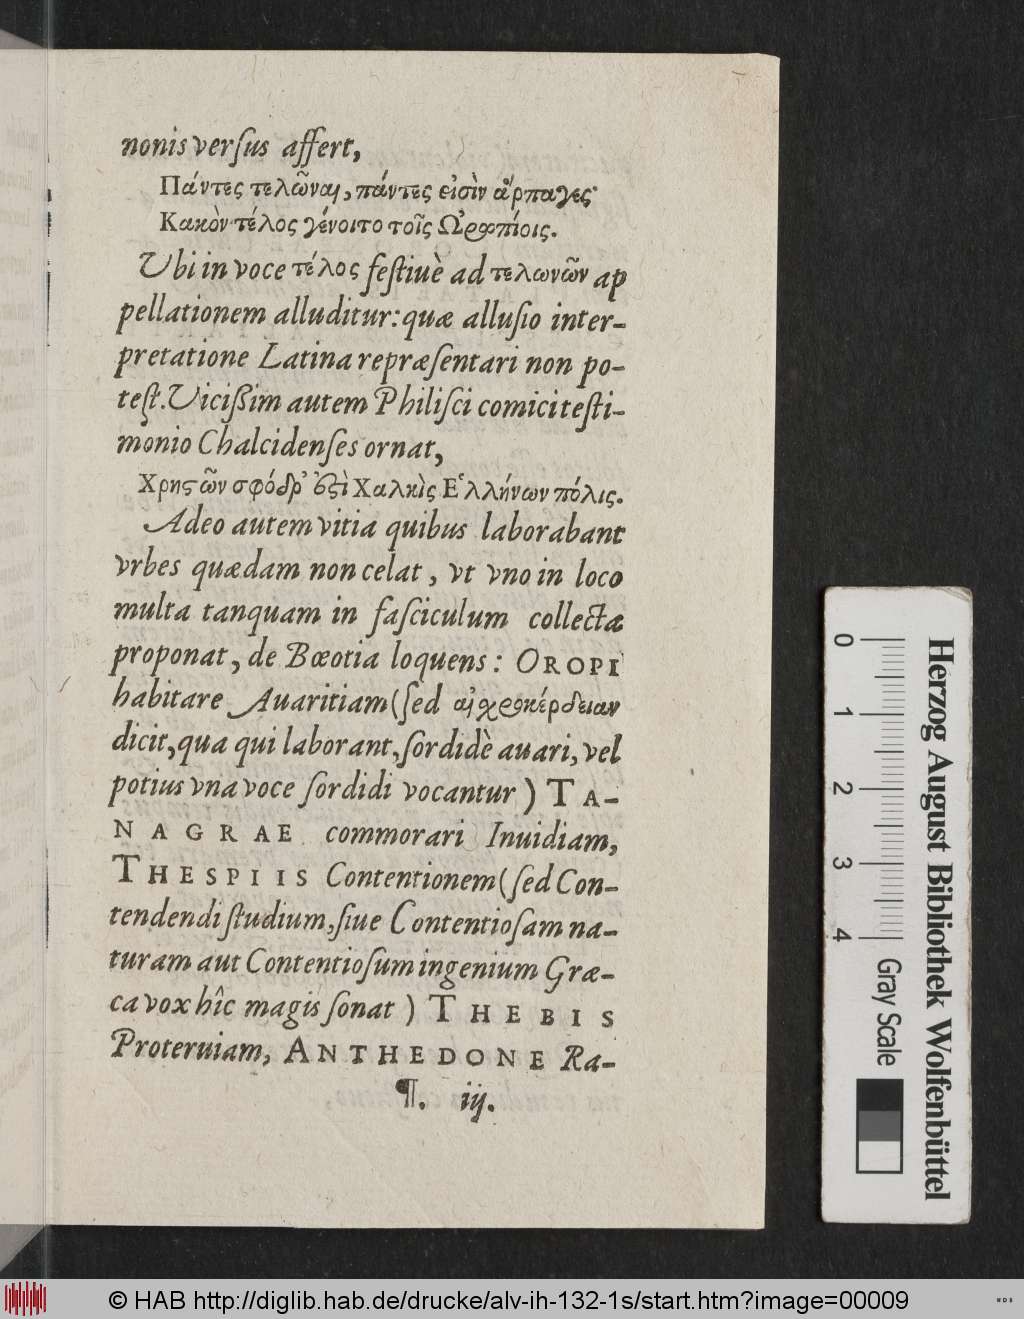 nonis verſus affert,
Πάντες τελῶναι, πάντες εἰσὶν ἅρπαγες·
Κακὸν τέλος γένοιτο τοῖς Ὠρωπίοις.
Ubi in voce τέλος feſtiuè ad τελωνῶν ap
pellationem alluditur: quæ alluſio inter-
pretatione Latina repræſentari non po-
teſt. Uicißim autem Philiſci comici teſti-
monio Chalcidenſes ornat,
Χρηστῶν σφόδρ' ἐστὶ Χαλκὶς Ἑλλήνων πόλις.
Adeo autem vitia quibus laborabant
vrbes quædam non celat, vt vno in loco
multa tanquam in faſciculum collecta
proponat, de Bœotia loquens: OROPI
habitare Auaritiam (ſed αἰσχροκέρδειαν
dicit, qua qui laborant, ſordidè auari, vel
potius vna voce ſordidi vocantur) TA-
NAGRAE commorari Inuidiam,
THESPIIS Contentionem (ſed Con-
tendendi ſtudium, ſiue Contentioſam na-
turam aut Contentioſum ingenium Græ-
ca vox hîc magis ſonat) THEBIS
Proteruiam, ANTHEDONE Ra-
¶. iij.
Herzog August Bibliothek Wolfenbüttel
0 1 2 3 4 Gray Scale
© HAB http://diglib.hab.de/drucke/alv-ih-132-1s/start.htm?image=00009
WDB